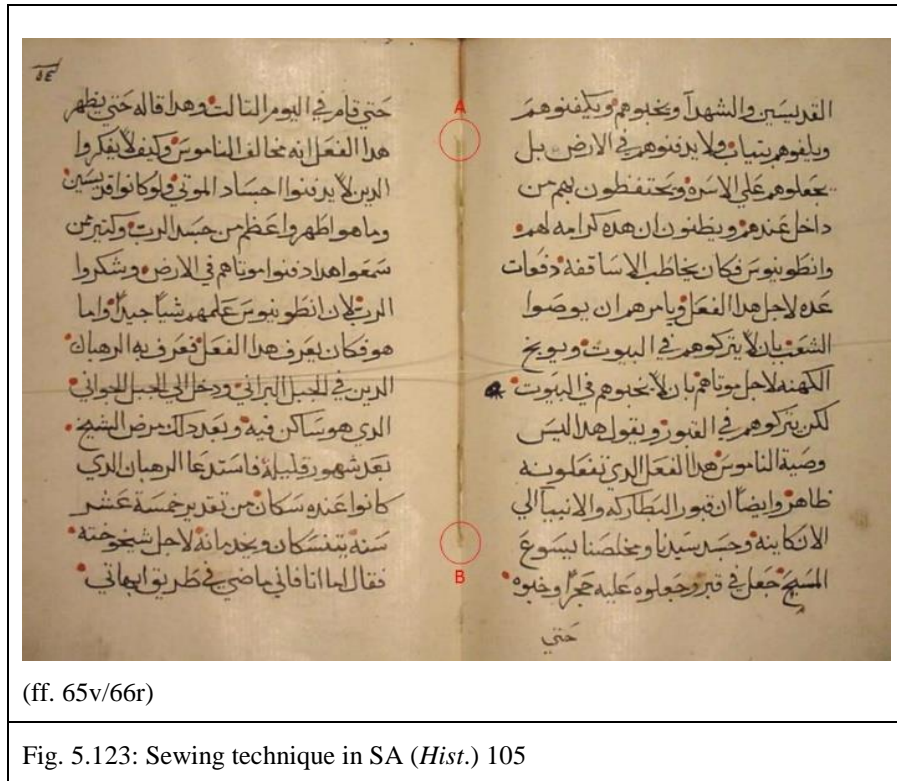 القديسين والشهدآ ويخبوهم ويكفنوهم
ويلفوهم بتياب ولا يدفنوهم في الارض بل
يجعلوهم علي الاسره ويحتفظون بهم من
داخل عندهم ويظنون ان هده كرامه لهم
وانطونيوس فكان يخاطب الاساقفة دفعات
عده لاجل هدا الفعل ويامرهم ان يوصوا
الشعب بان لا يتركوهم في البيوت ويوبخ
الكهنه لاجل موتاهم بان لا يخبوهم في البيوت
لكن يتركوهم في القبور ويقول هدا ليس
وصية الناموس هدا الفعل الدي تفعلونه
ظاهر وايضاً ان قبور البطاركه والانبيا الي
الان كاينه وجسد سيدنا ومخلصنا يسوع
المسيح جعل في قبر وجعلوه عليه حجراً وخبوه
حتي
حتي قام في اليوم التالت وهدا قاله حتي يظهر
هدا الفعل انه مخالف الناموس وكيف لا يفكروا
الدين لا يدفنوا اجساد الموتي ولو كانوا قديسين
وما هو اطهر واعظم من جسد الرب وكتير ممن
سمعوا هدا دفنوا موتاهم في الارض وشكروا
الرب لان انطونيوس علمهم شياً جيداً واما
هو فكان يعرف هدا الفعل فعرف به الرهبان
الدين في الجبل البراني ودخل الي الجبل الجواني
الدي هو ساكن فيه وبعد دلك مرض الشيخ
بعد شهور قليله فاستدعا الرهبان الدي
كانوا عنده سكان من تقدير خمسة عشر
سنه يتنسكان ويخدمانه لاجل شيخوخته
فقال لهما انا فاني ماضي في طريق ابهاتي
A
B
(ff. 65v/66r)
Fig. 5.123: Sewing technique in SA (Hist.) 105